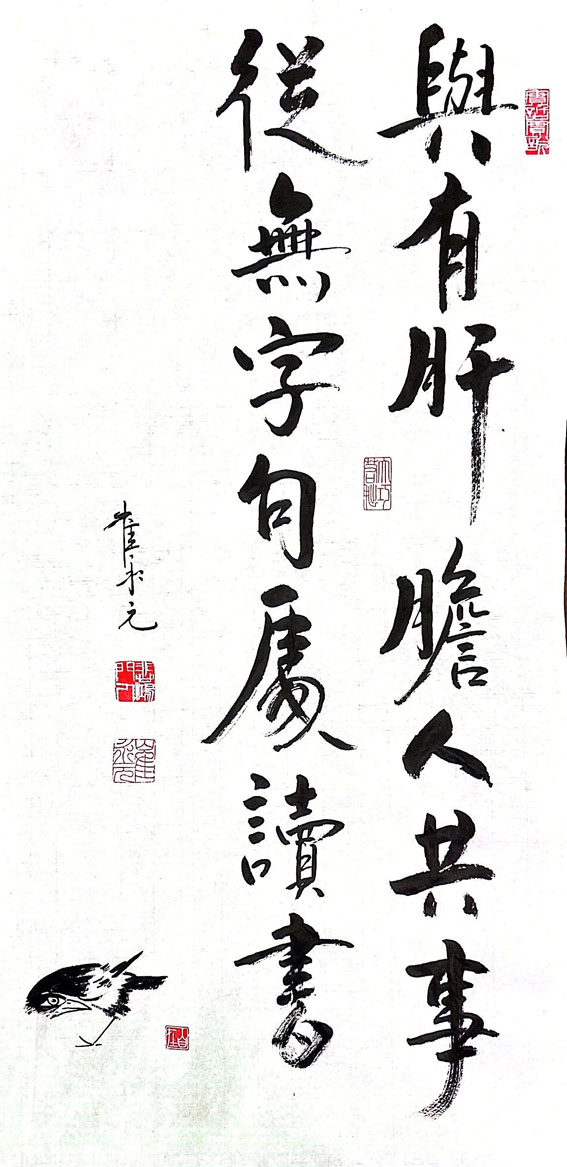 與有肝膽人共事
從無字句處讀書
崔永元